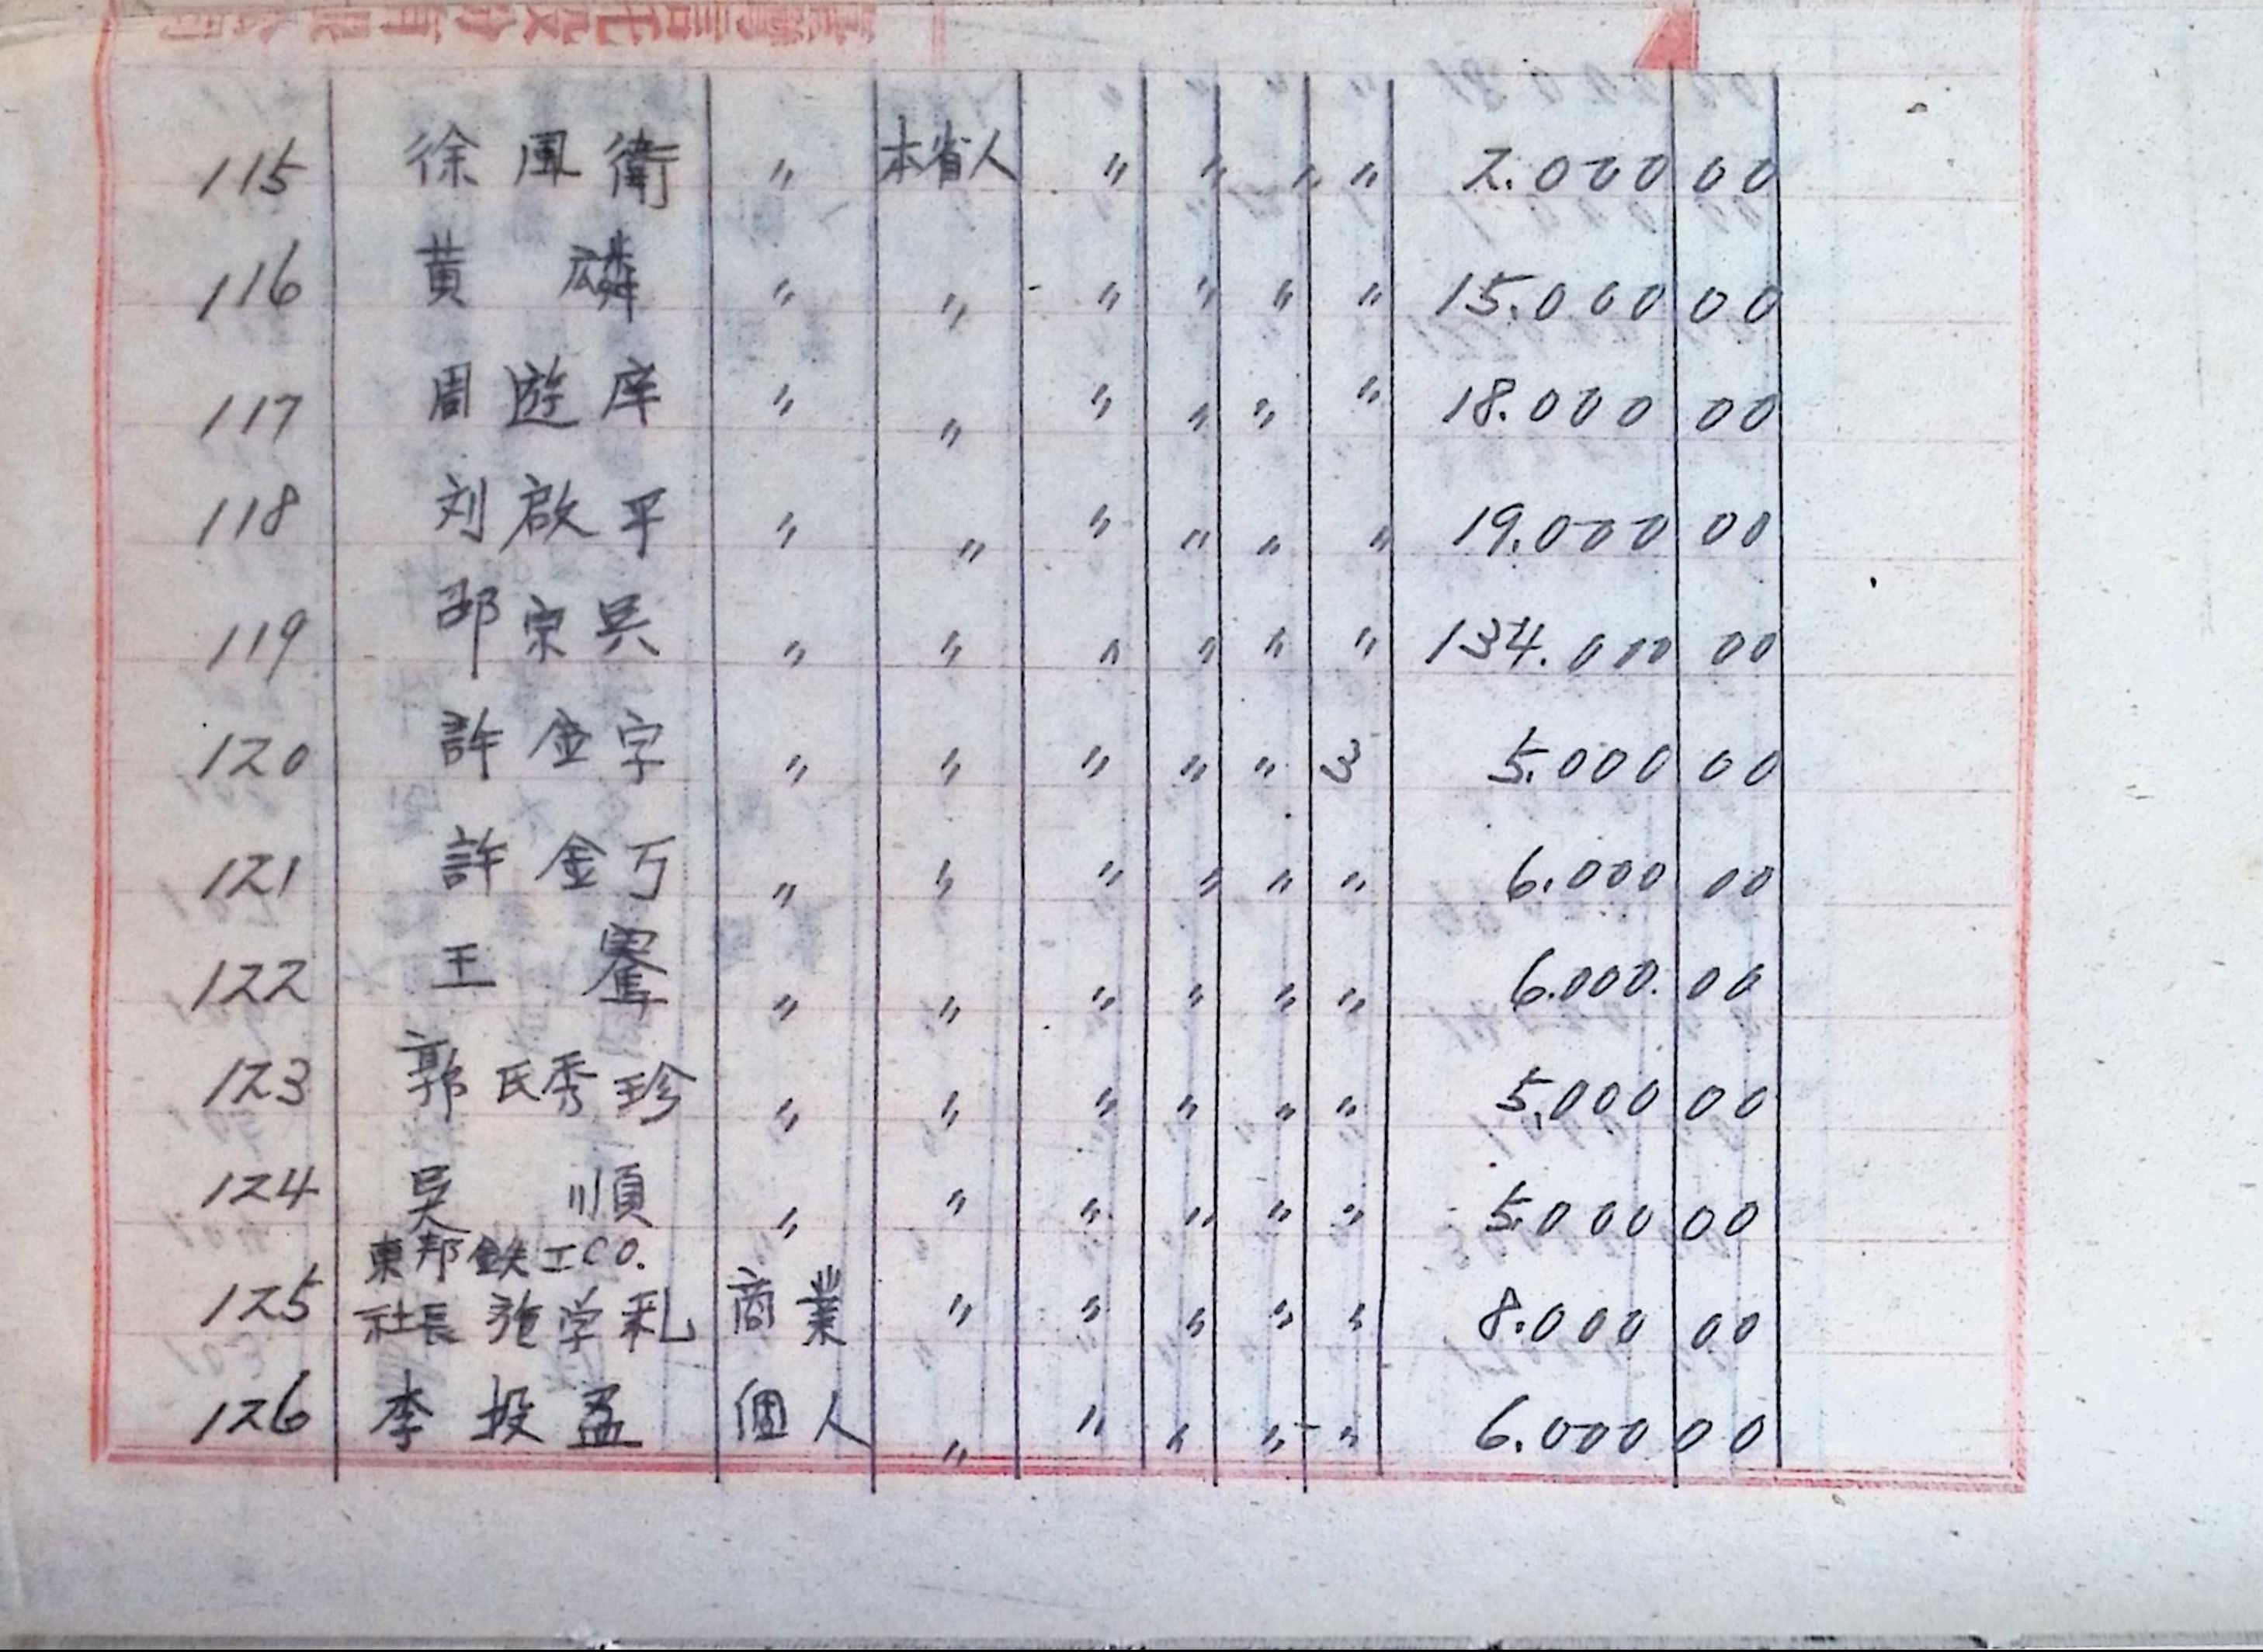 115 徐風衛 〃 本省人 〃 〃 〃 〃 2.000 00
116 黄 〃 〃 〃 〃 〃 〃 15.000 00
117 周遊庠 〃 〃 〃 〃 〃 〃 18.000 00
118 刘啟平 〃 〃 〃 〃 〃 〃 19.000 00
119 邵宗呉 〃 〃 〃 〃 〃 〃 134.000 00
120 許金字 〃 〃 〃 〃 〃 3 5.000 00
121 許金丂 〃 〃 〃 〃 〃 〃 6.000 00
122 王 〃 〃 〃 〃 〃 〃 6.000. 00
123 郭氏秀珍 〃 〃 〃 〃 〃 〃 5.000 00
124 吴順 〃 〃 〃 〃 〃 〃 5.000 00
東邦鉄工CO.
125 社長 施学礼 商業 〃 〃 〃 〃 〃 8.000 00
126 李投孟 個人 〃 〃 〃 〃 〃 6.000 00